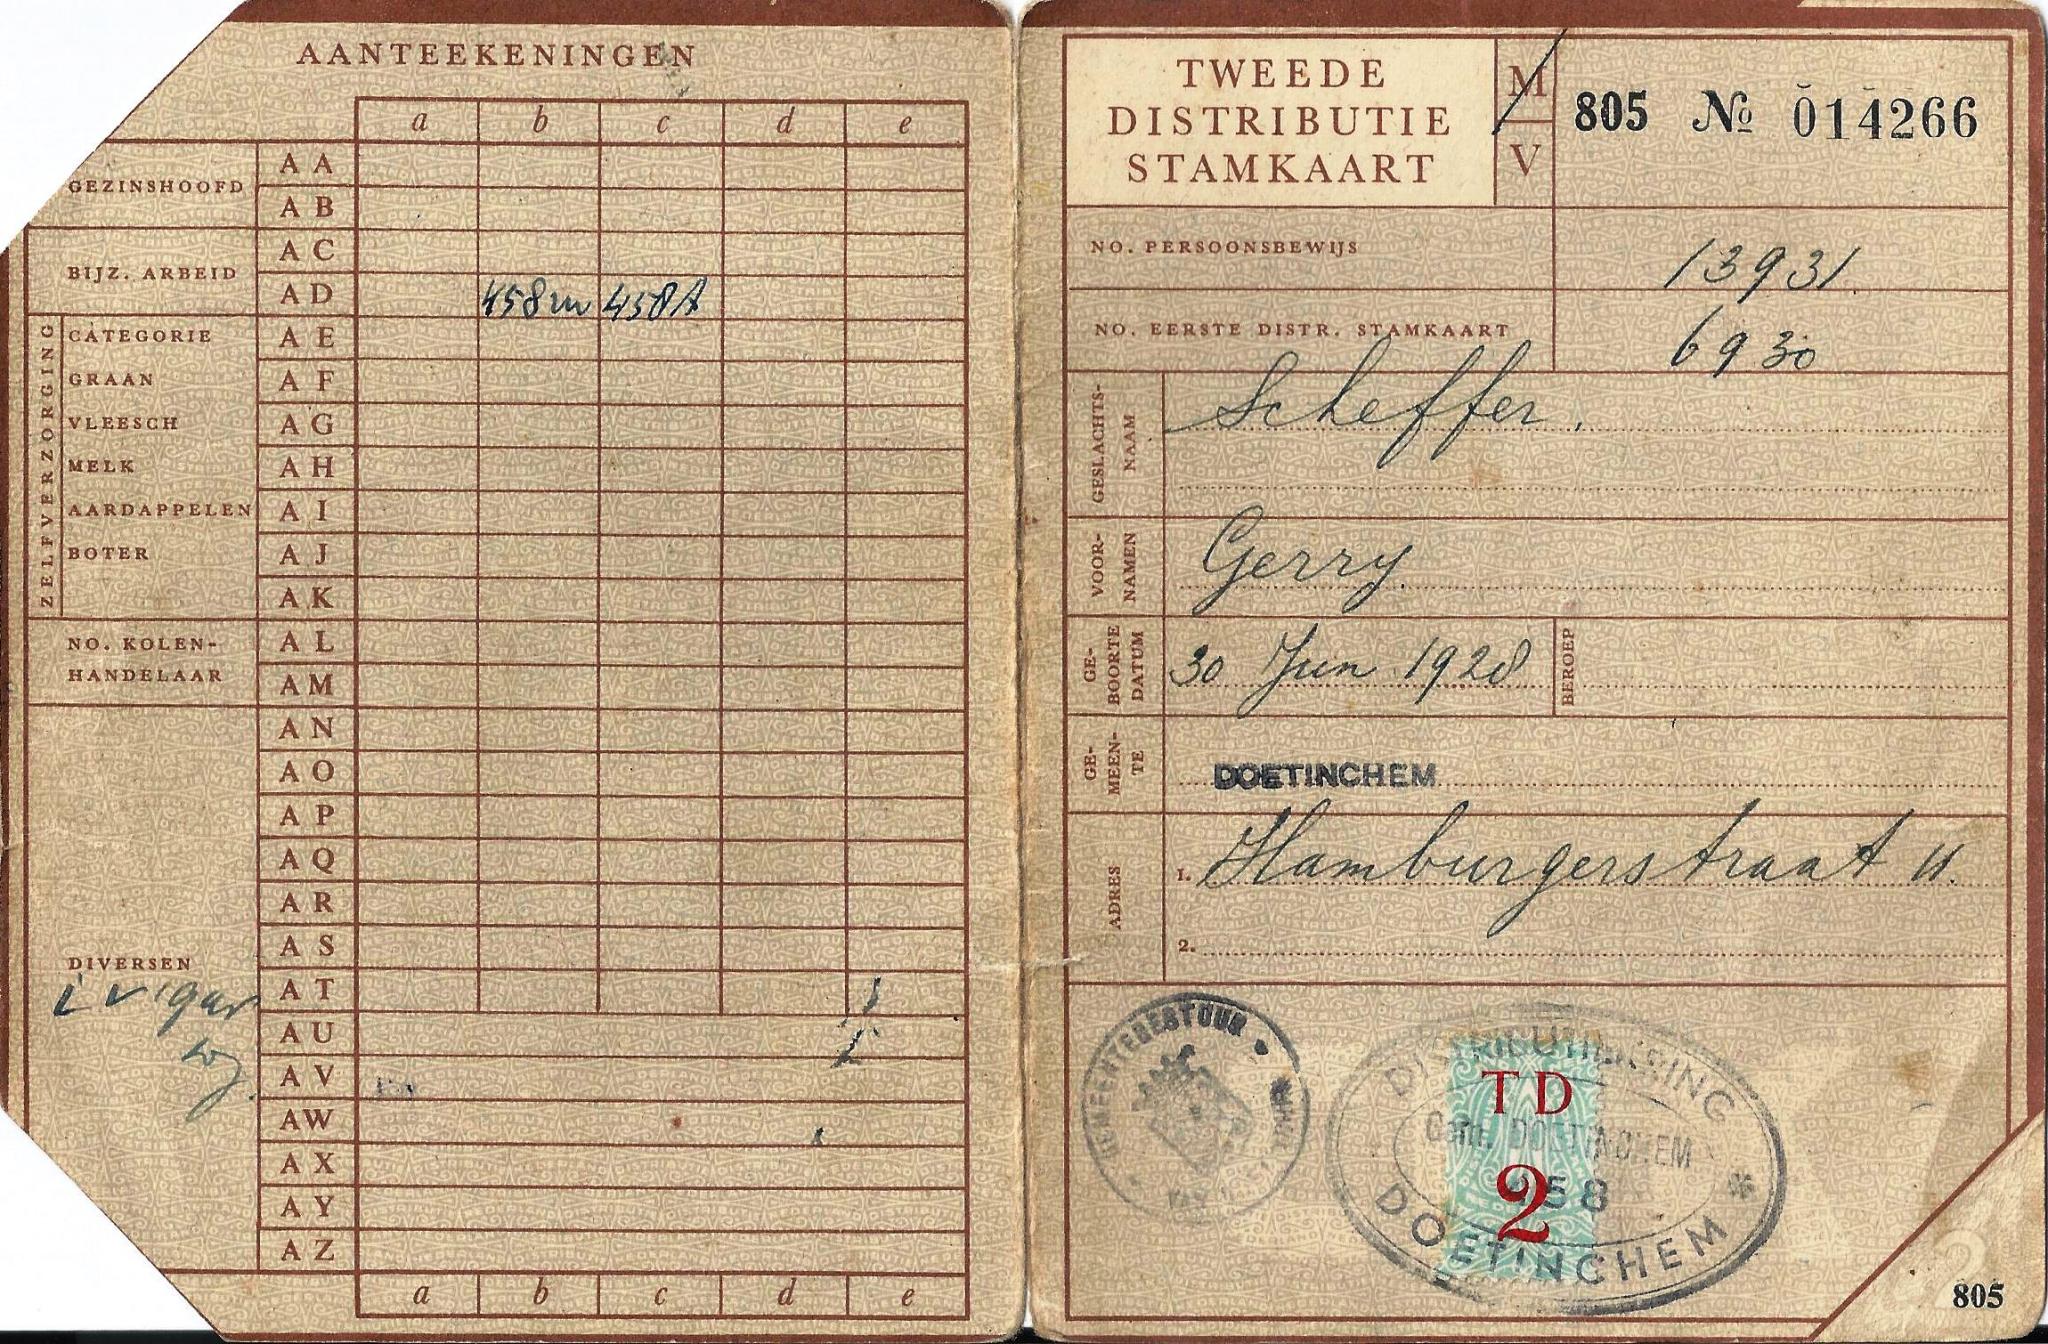 AANTEEKENINGEN
a b c d e
GEZINSHOOFD
AA
AB
BIJZ. ARBEID
AC
AD 458m 458A
ZELFVERZORGING
CATEGORIE AE
GRAAN AF
VLEESCH AG
MELK AH
AARDAPPELEN AI
BOTER AJ
AK
NO. KOLEN-
HANDELAAR
AL
AM
AN
AO
AP
AQ
AR
AS
DIVERSEN
AT
AU
AV
AW
AX
AY
AZ
a b c d e
TWEEDE
DISTRIBUTIE
STAMKAART
M
V
805 No 014266
NO. PERSOONSBEWIJS 13931
NO. EERSTE DISTR. STAMKAART 6930
GESLACHTS-
NAAM
Scheffer.
VOOR-
NAMEN
Gerry
GE-
BOORTE
DATUM
30 Jun 1928
BEROEP
GE-
MEEN-
TE
DOETINCHEM
ADRES
1. Hamburgerstraat
2.
GEMEENTEBESTUUR
DISTRIBUTIEKRING
TD
Gem. DOETINCHEM
2
58
DOETINCHEM
2
805